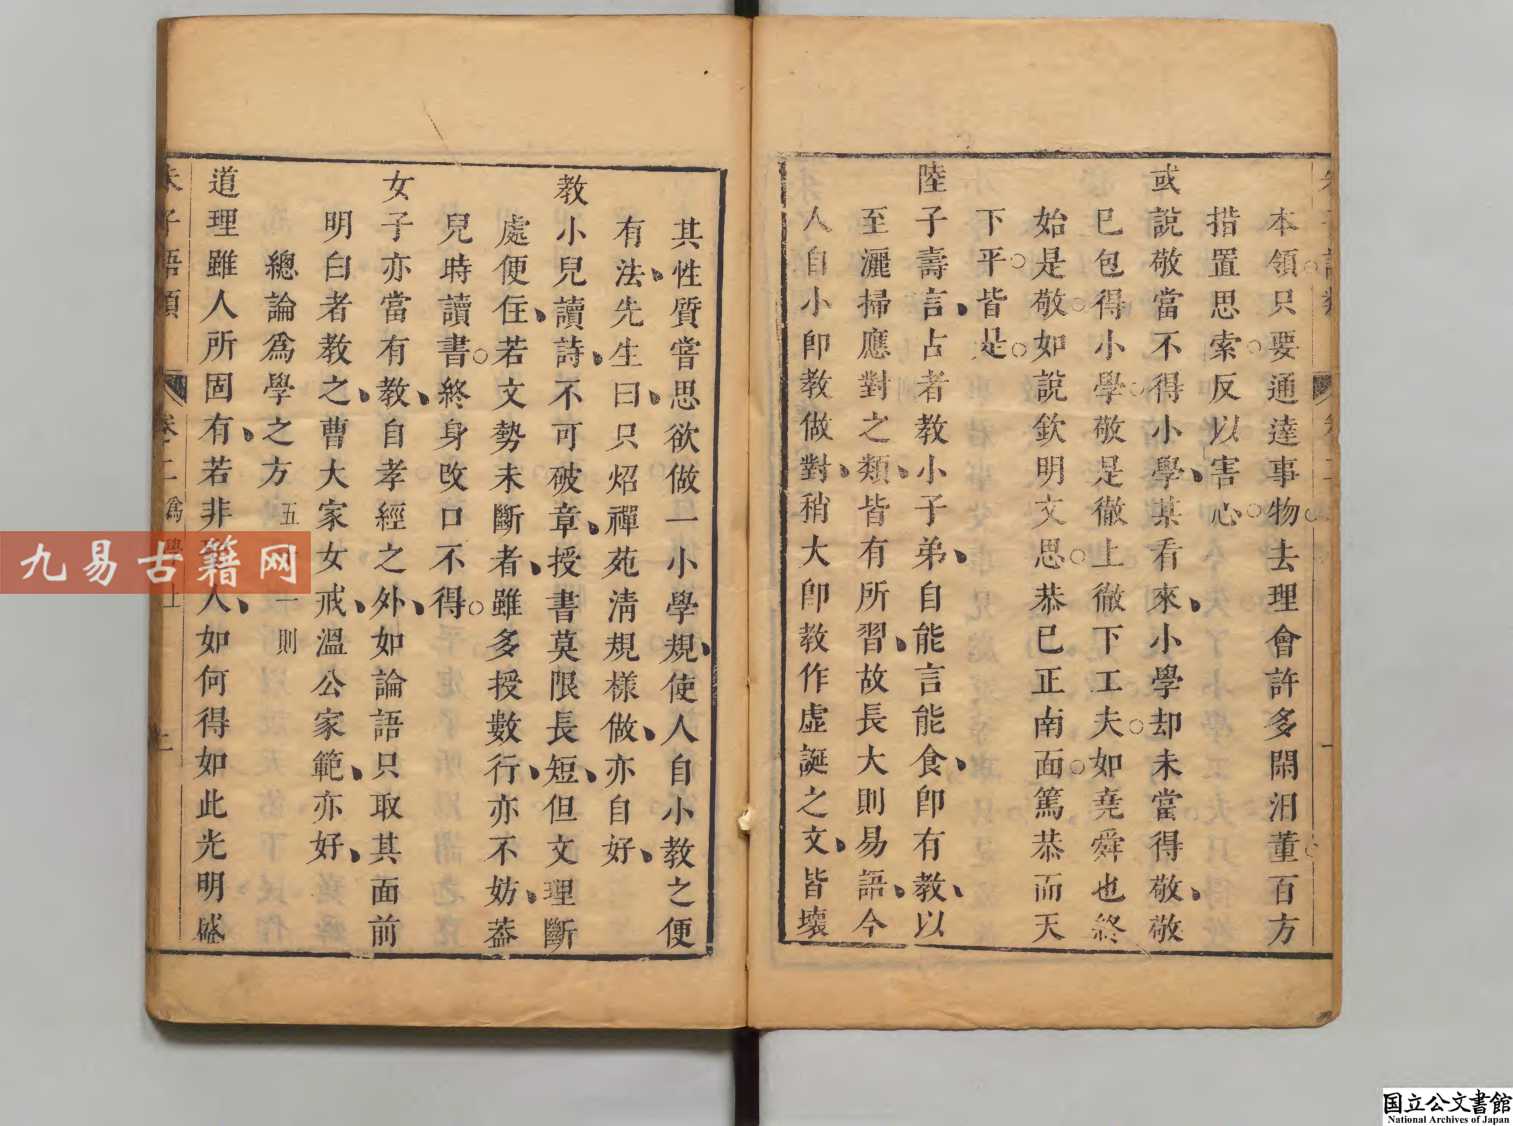 本領只要通達事物去理會許多閑汨董百方
措置思索反以害心
或說敬當不得小學某看來小學却未當得敬敬
已包得小學敬是徹上徹下工夫如堯舜也終
始是敬如說欽明文思恭已正南面篤恭而天
下平皆是
陸子壽言占者教小子弟自能言能食卽有教以
至灑掃應對之類皆有所習故長大則易語今
人自小卽教做對稍大卽教作虛誕之文皆壞
其性質嘗思欲做一小學規使人自小教之便
有法先生曰只炤禪苑淸規樣做亦自好
教小兒讀詩不可破章授書莫限長短但文理斷
處便住若文勢未斷者雖多授數行亦不妨蓋
兒時讀書終身改口不得
女子亦當有教自孝經之外如論語只取其面前
明白者教之曹大家女戒溫公家範亦好
總論爲學之方 五 一則
道理雖人所固有若非 人如何得如此光明盛
朱子語類 卷二 爲學上
九易古籍网
国立公文書館
National Archives of Japan